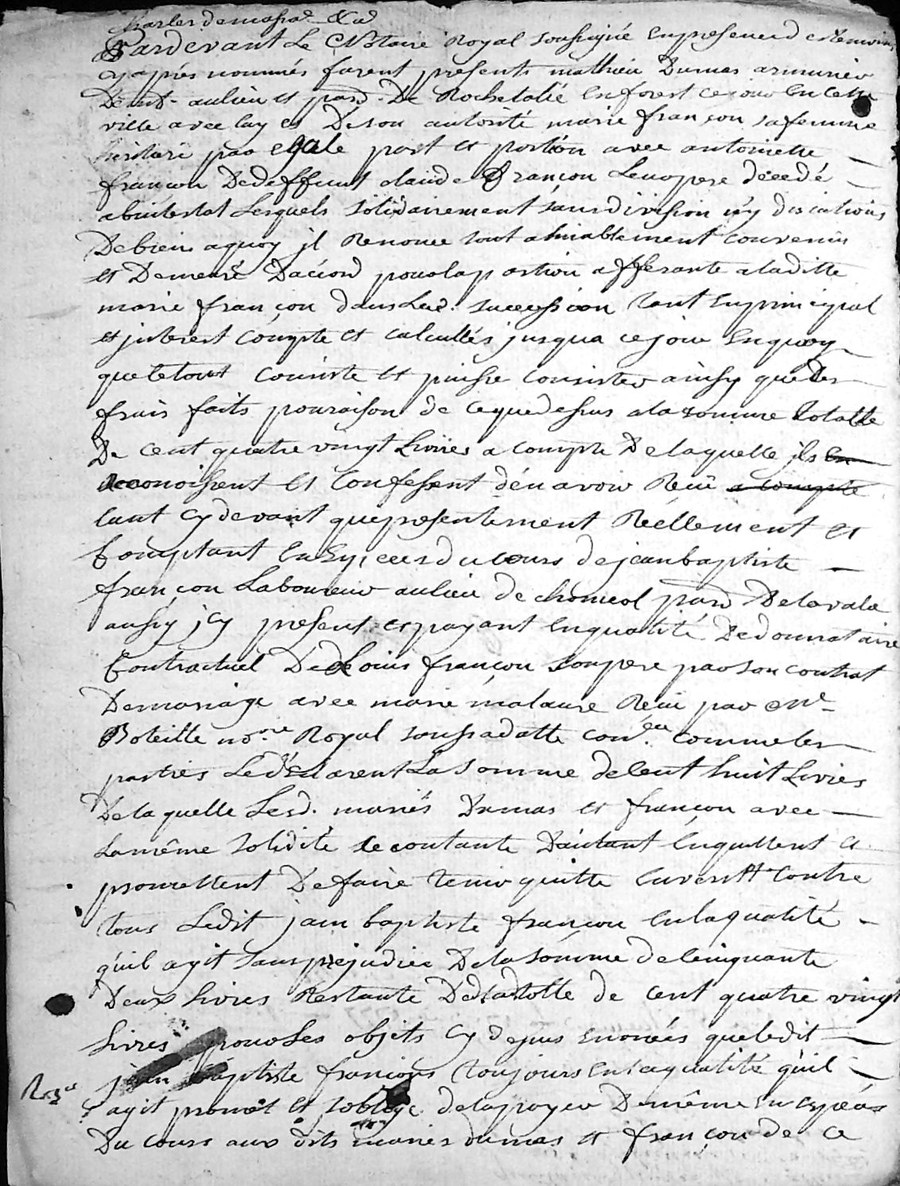 Pardevant Le Notaire Royal soussigné En presence de temoins
cy apres nommés furent presents mathieu Dumas armurier
De st. aulieu et par. De Rochetalié En forest ce jour En cette
ville avec luy et De son autorité marie françon sa femme
heritiere par egale part et portion avec antoinette
françon De deffunt claude françon Leur pere décédé
abintestat Lesquels solidairement sans division n'y discution
De bien aquoy jl Renonce sont amiablement convenus
et Demeuré D'acord pour la portion afferante a laditte
marie françon dans Lad. succession tant En principal
et jnterest compte et calcullés jusqua ce jour En quoy
que le tout consiste et puisse consister ainsy que des
frais faits pour raison de ce que dessus a la somme totalle
De cent quatre vingt Livres a compte De laquelle ils en
reconoissent et Confessent d'en avoir Reçu a compte
tant cy devant que presentement Réellement et
Comptant En Espèces du cours de jean baptiste
françon Laboureur au lieu de chomeol par. De lavala
aussy jcy present et payant En qualité De donnataire
Contractuel De Louis françon son pere par son contrat
De mariage avec marie malaure Reçu par Me
Boteille nore Royal sous sa datte con.ee comme les
parties Le declarent La somme de Cent huit Livres
De laquelle Lesd. mariés Dumas et françon avec
La même solidité le contante D'autant En quittent et
promettent De faire tenir quitte Envers et Contre
tous Ledit jean baptiste françon En la qualité
qu'il agit sans prejudice De la somme de Cinquante
Deux Livres Restante De laditte de Cent quatre vingt
Livres pour les objets cy dessus Enoncés que ledit
jean baptiste françon toujours En la qualité qu'il
agit promet et s'oblige de la payer De même En Espéces
Du cours aux dits mariés dumas et françon de ce